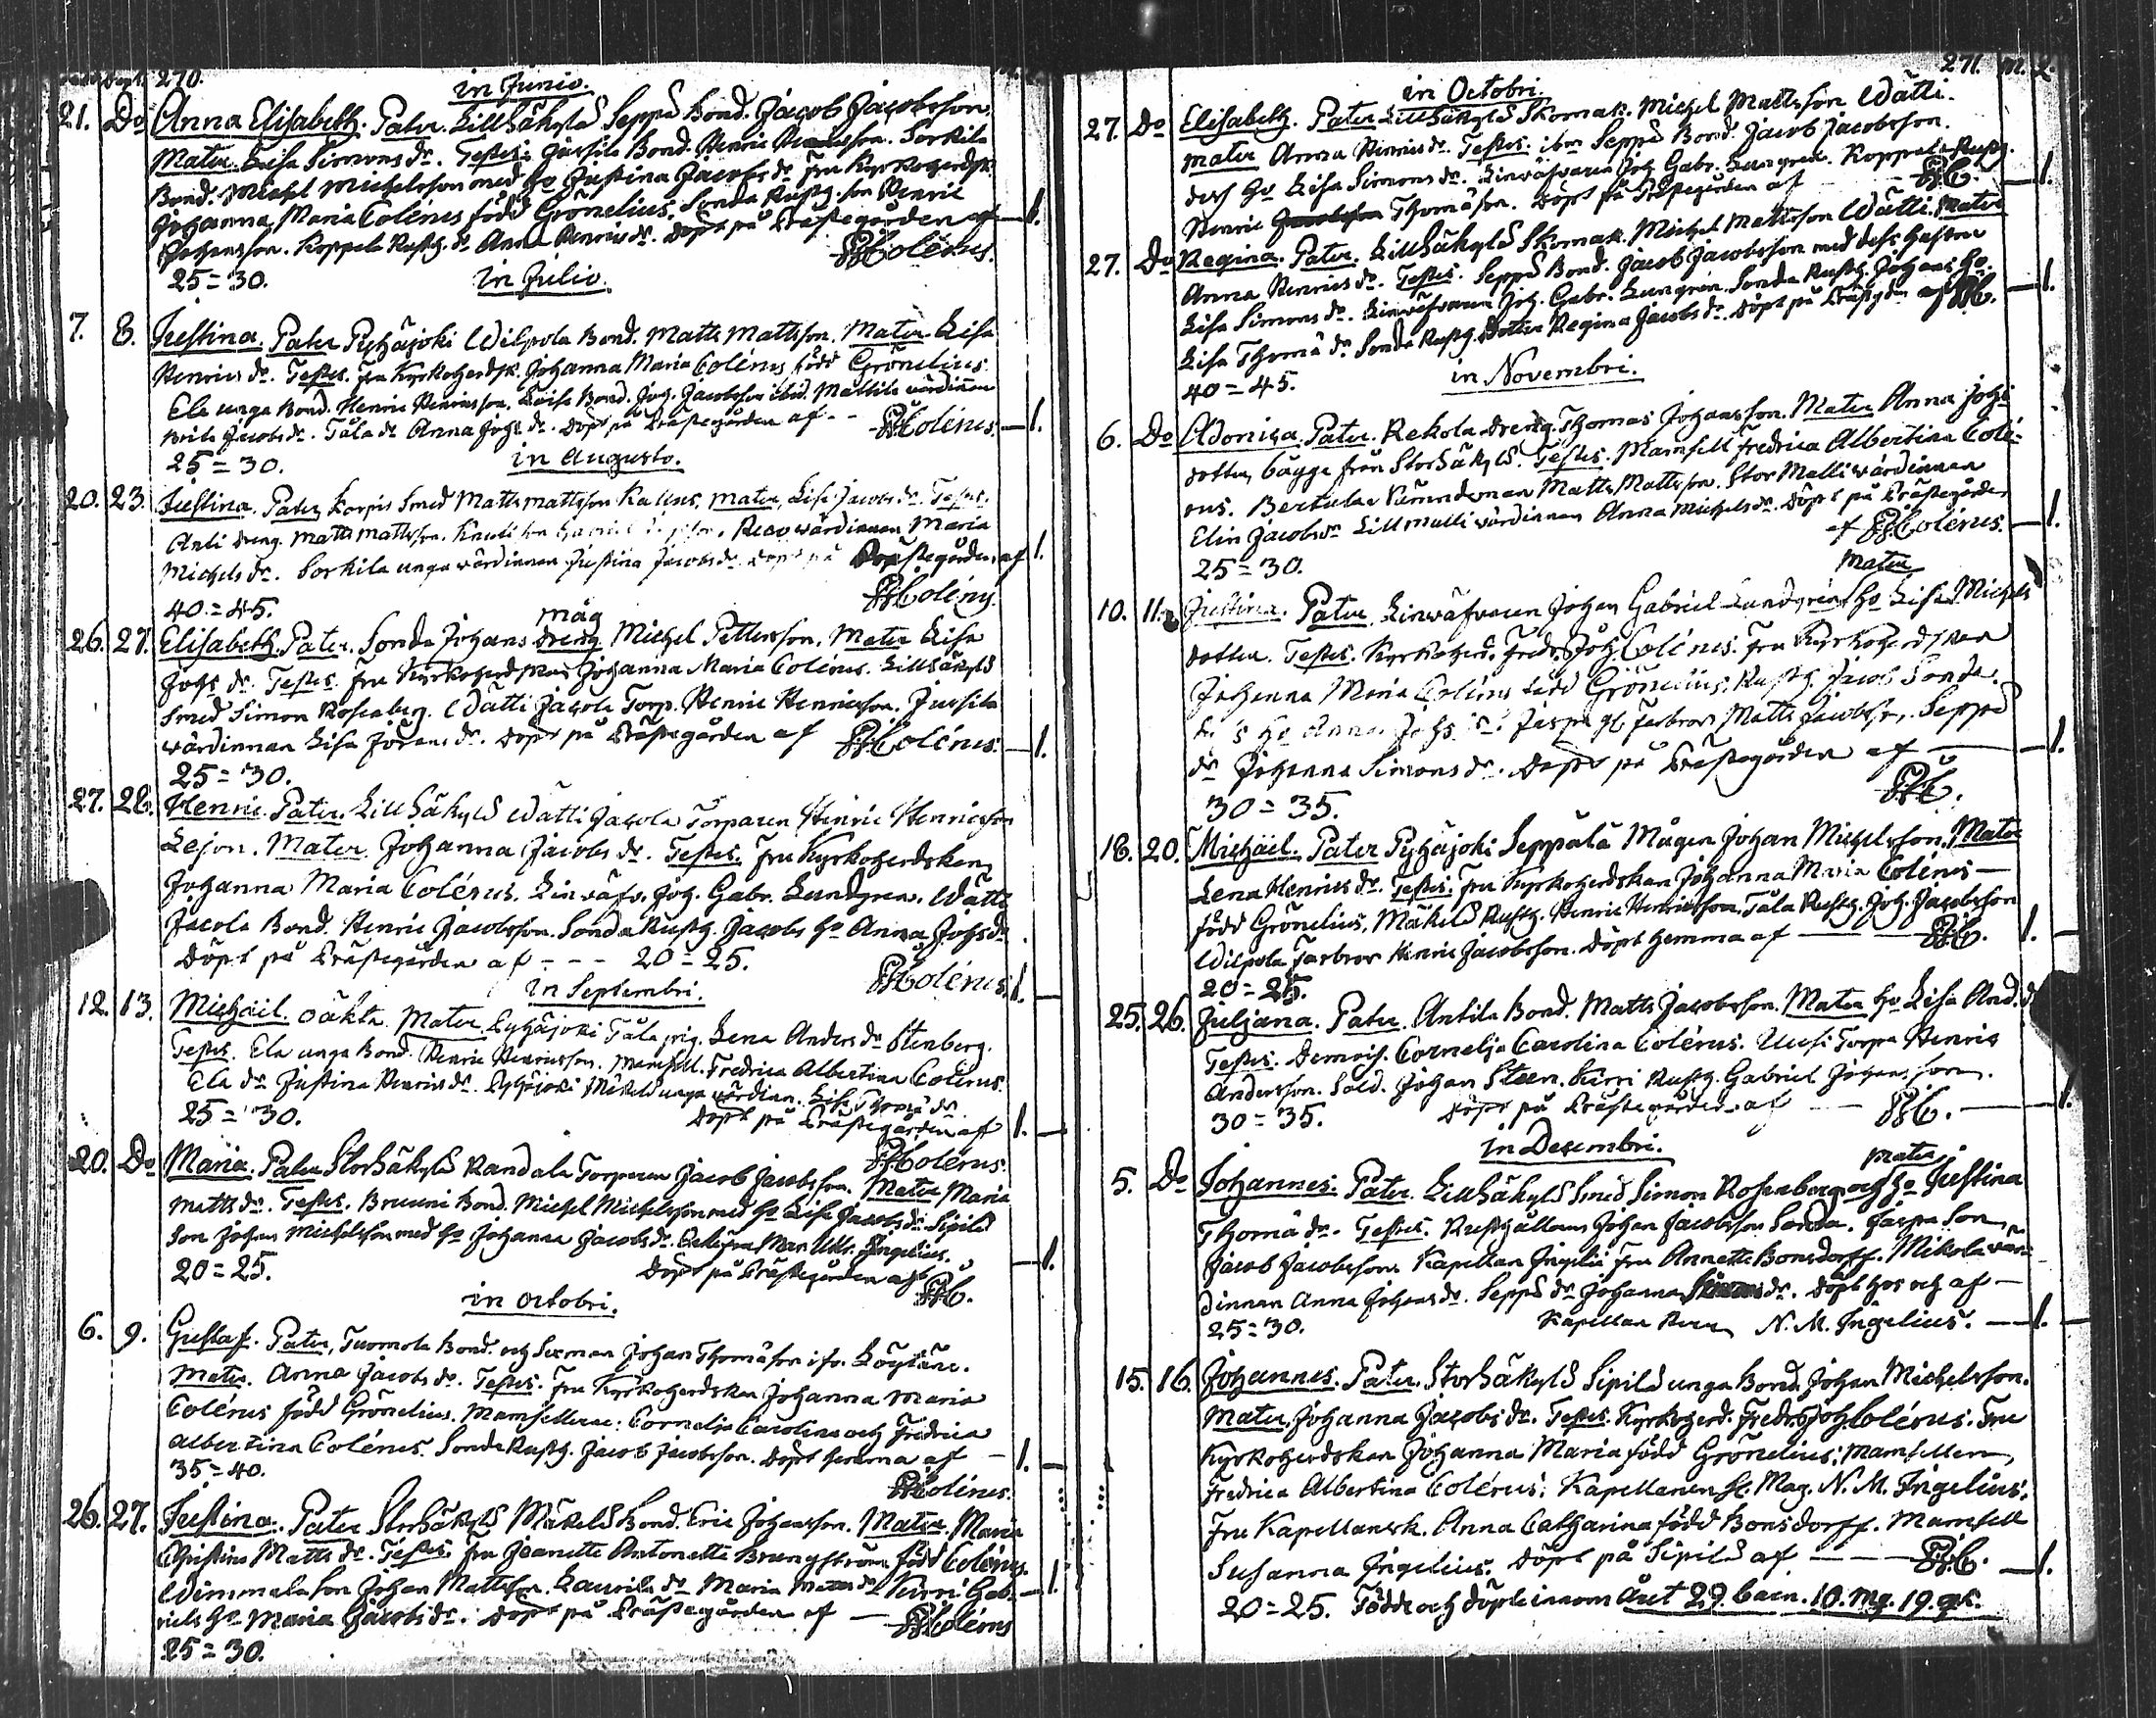 270.
in Junio.
21. Do Anna Elisabeth. Pater. Lillsäkylä Seppä Bond. Jacob Jacobsson.
Mater. Lisa Simons dr. Testes: Jussila Bond. Henric Henricsson. Sorkila
Bond. Michel Michelsson med ho Justina Jacobs dr. Fru Kyrkoherdsk.
Johanna Maria Colérus född Grönelius. Sonda Rustg. son Henric
Johansson. Koppela Rustg. dr Anna Henricsdr. Döpt på Prästegården af — 1.
25=30. Colérus.
in Julio.
7. 8. Justina. Pater Pyhäjoki Wilpola Bond. Matts Mattsson. Mater Lisa
Henrics dr. Testes. Fru Kyrkoherdsk. Johanna Maria Colérus född Grönelius.
Ela unga Bond. Henric Henricsson. Bond. Joh. Jacobsson ibid. Mattila wärdinnan
Brita Jacobs dr. Tåla dr Anna Johs dr. Döpt på Prästegården af -- Colérus. — 1.
25=30. in Augusto.
20. 23. Justina. Pater Smed Matts Mattsson. Mater, Lisa Jacobs dr. Testes.
Anti Dreng. Matts Mattsson. wärdinnan Maria
Michels dr. Sorkila unga wärdinnan Justina Jacobs dr. Döpt på Prästegården af 1.
40=45. Colérus.
måg
26. 27. Elisabeth. Pater. Sonda Johans Dreng Michel Pettersson. Mater Lisa
Johs dr. Testes. Fru Kyrkoherdskan Johanna Maria Colérus. Lillsäkylä
Smed Simon Rosenberg. Wätti Jacola Torp. Henric Henricsson. Jussila
wärdinnan Lisa Jörans dr. Döpt på Prästegården af Colérus. — 1.
25=30.
27. 28. Henric. Pater. Lillsäkylä Wätti Jacola Torparen Henric Henricsson
Lejon. Mater. Johanna Jacobs dr. Testes. Fru Kyrkoherdskan
Johanna Maria Colérus. Linwäfv. Joh. Gabr. Lundgren. Wätti
Jacola Bond. Henric Jacobsson. Sonda Rustg. Jacobs ho Anna Johsdr
Döpt på Prästegården af --- 20=25. Colérus. 1. —
in Septembri.
12. 13. Michaël. oäkta. Mater. Pyhäjoki Tåla pig. Lena Anders dr Stenberg.
Testes. Ela unga Bond. Henric Henricsson. Mamsell. Fredrica Albertina Colérus.
Ela dr Justina Henrics dr. Pyhäjoki Mäkelä unga wärdinn. Lisa Thomä dr.
25=30. Döpt på Prästegården af 1. —
Colérus.
20. Do Maria. Pater Storsäkylä Randala Torparen Jacob Jacobsson. Mater Maria
Matts dr. Testes. Bruuni Bond. Michel Michelsson med ho Lisa Jacobs dr. Sipilä
Son Johan Michelsson med ho Johanna Jacobs dr. Ingelius.
20=25. Döpt på Prästegården af — 1.
in Octobri.
6. 9. Gustaf. Pater, Tuomola Bond. och Sexman Johan Thomäson
Mater. Anna Jacobs dr. Testes. Fru Kyrkoherdskan Johanna Maria
Colérus född Grönelius. Mamsellerne: Cornelia Carolina och Fredrica
Albertina Colérus. Sonda Rustg. Jacob Jacobsson. Döpt hemma af — 1. —
35=40. Colérus.
26. 27. Justina. Pater Storsäkylä Mäkelä Bond. Eric Johansson. Mater. Maria
Christina Matts dr. Testes. Fru Jeanette Antonette Brungström född Colérus.
Wimmala son Johan Mattsson. Laurila dr Maria Matts dr Kurri Gab-
riels ho Maria Jacobs dr. Döpt på Prästegården af — Colérus — 1.
25=30.
271. M. Q.
in Octobri.
27. Do Elisabeth. Pater Lillsäkylä Skomak. Michel Mattsson Wätti.
Mater Anna Henrics dr. Testes. Seppä Bond. Jacob Jacobsson.
dess ho Lisa Simons dr. Linwäfvaren Joh. Gabr. Lungren. Koppela Rustg.
Henric Thomäson. Döpt på Prästegården af — 1.
27. Do Regina. Pater. Lillsäkylä Skomak. Michel Mattsson Wätti. Mater
Anna Henrics dr. Testes. Seppä Bond. Jacob Jacobsson med dess hustru
Lisa Simons dr. Linwäfvaren Joh. Gabr. Lungren. Sonda Rustg. Johans ho.
Lisa Thomä dr Sonda Rustg. Dotter Regina Jacobs dr. Döpt på Prästgdn af — 1.
40=45. in Novembri.
6. Do Adoniza. Pater. Rekola Dreng Thomas Johansson. Mater Anna Johs
dotter, bägge från Storsäkylä. Testes. Mamsell Fredrica Albertina Colé-
rus. Bertula Nämndeman Matts Mattsson. Stor Malli wärdinnan
Elin Jacobsdr Lillmalli wärdinnan Anna Michelsdr. Döpt på Prästegården
25=30. af Colérus. — 1.
Mater
10. 11. Justina. Pater. Linwäfvaren Johan Gabriel Lundgren ho Lisa Michels
dotter. Testes. Kyrkoherd. Fredr. Joh. Colérus. Fru Kyrkoherdskan
Johanna Maria Colérus född Grönelius. Rustg. Jacob Sonda.
ho Anna Johs dr. farbror Matts Jacobsson. Seppä
dr Johanna Simons dr. Döpt på Prästegården af — 1.
30=35.
18. 20. Michaël. Pater Pyhäjoki Seppälä Mågen Johan Michelsson. Mater
Lena Henrics dr. Testes. Fru Kyrkoherdskan Johanna Maria Colérus —
född Grönelius. Mäkelä Rustg. Henric Henricsson. Tåla Rustg. Joh. Jacobsson
Wilpola Farbror Henric Jacobsson. Döpt hemma af — 1. —
20=25.
25. 26. Juliana. Pater. Antila Bond. Matts Jacobsson. Mater ho Lisa And. dr
Testes. Demois. Cornelia Carolina Colérus. Uusi Torpa Henric
Andersson. Sold. Johan Steen. Kurri Rustg. Gabriel Johansson.
30=35. Döpt på Prästegården af — 1.
in Desembri.
Mater
5. Do Johannes. Pater. Lillsäkylä Smed Simon Rosenberg och ho Justina
Thomä dr. Testes. Rusthållaren Johan Jacobsson Sonda. Jaspa Son
Jacob Jacobsson. Kapellan Ingelii Fru Annette Bonsdorff. Mikola wär-
dinnan Anna Johans dr. Seppä dr Johanna Simons dr. Döpt hos och af —
25=30. Kapellan N. M. Ingelius. — 1. —
15. 16. Johannes. Pater. Storsäkylä Sipilä unga Bond. Johan Michelsson.
Mater. Johanna Jacobs dr. Testes. Kyrkoherd. Fredr. Joh. Colérus. Fru
Kyrkoherdskan Johanna Maria född Grönelius. Mamsellen
Fredrica Albertina Colérus. Kapellanen H. Mag. N. M. Ingelius.
Fru Kapellansk. Anna Catharina född Bonsdorff. Mamsell
Susanna Ingelius. Döpt på Sipilä af — 1.
20=25. Födde och döpte innom året 29 barn. 10. mg. 19. qk.